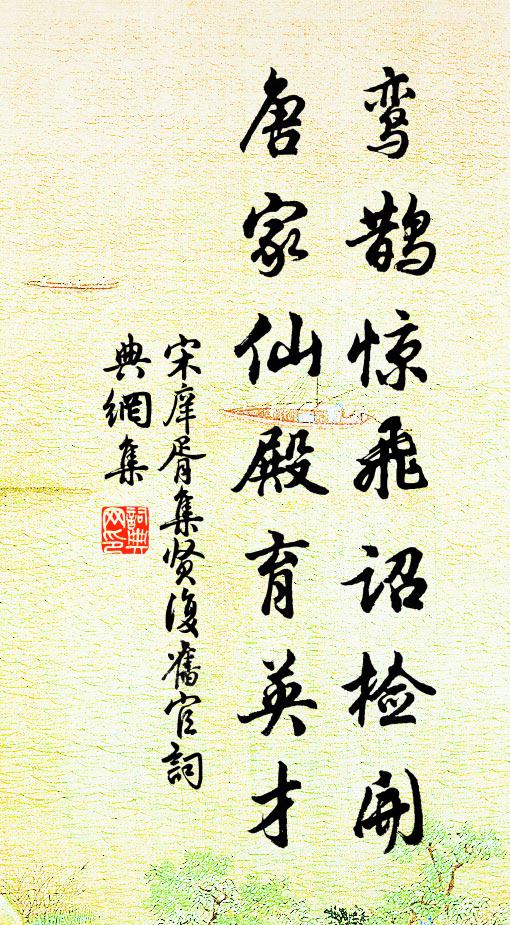 鸾鹊惊飞诏检开
唐家仙殿育英才
宋庠胥集贤复旧官词
典網集
詞典
网印